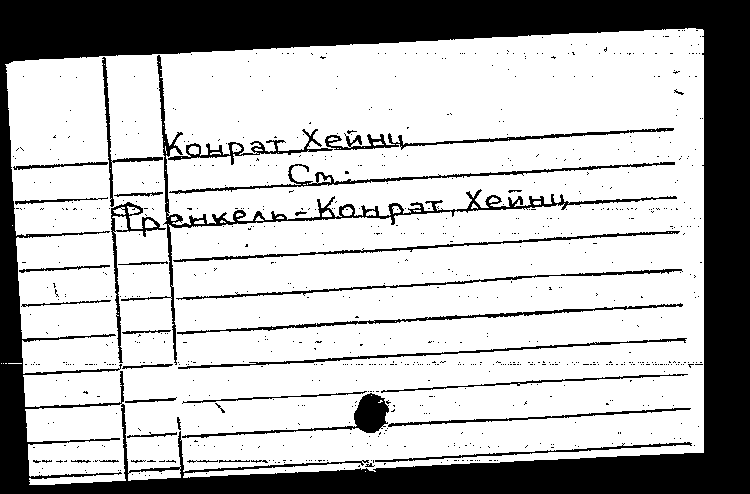 Конрат, Хейнц
См.:
Френкель-Конрат, Хейнц